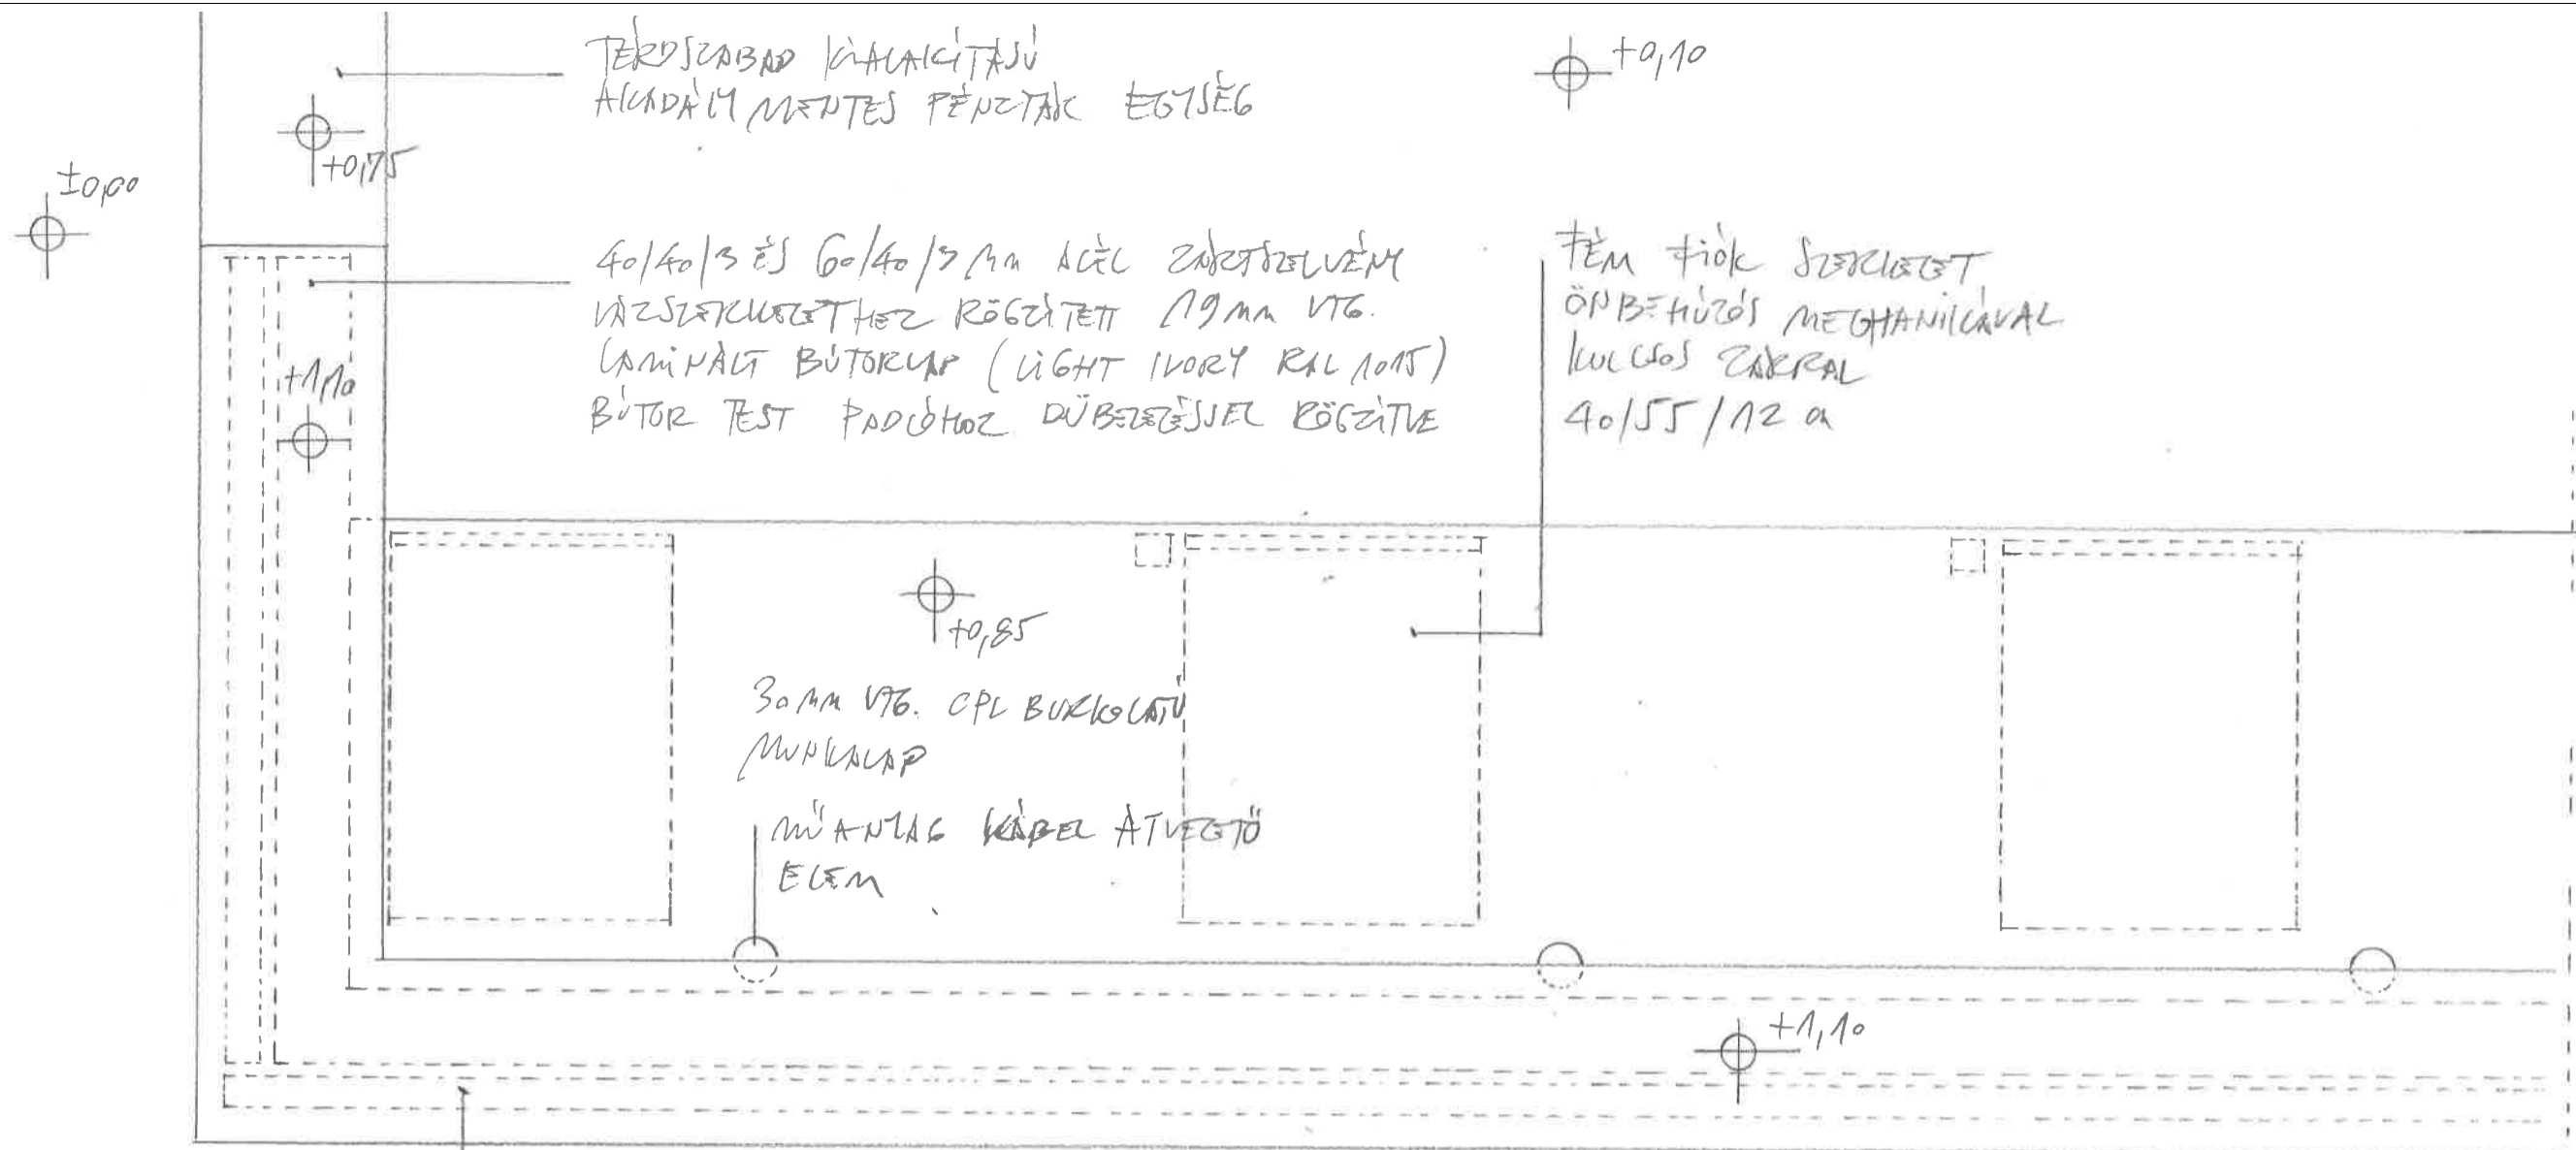 TÉRDSZABAD KIALAKÍTÁSÚ
AKADÁLYMENTES PÉNZTÁR EGYSÉG
+0,10
+0,75
±0,00
40/40/3 ÉS 60/40/3 mm ACÉL ZÁRTSZELVÉNY
VÁZSZERKEZETHEZ RÖGZÍTETT 19 mm VTG.
LAMINÁLT BÚTORLAP (LIGHT IVORY RAL 1015)
BÚTOR TEST PADLÓHOZ DÜBELEZÉSSEL RÖGZÍTVE
FÉM FIÓK SZERKEZET
ÖNBEHÚZÓS MECHANIKÁVAL
KULCSOS ZÁRRAL
40/55/12 cm
+1,10
+0,85
30 mm VTG. CPL BURKOLATÚ
MUNKALAP
MŰANYAG KÁBEL ÁTVEZETŐ
ELEM
+1,10